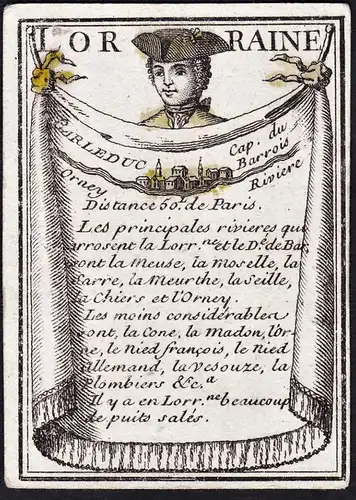 LOR RAINE
BARLEDUC Cap. du
Barrois
Orney Riviere
Distance 50.t de Paris.
Les principales rivieres qui
arrosent la Lorr.ne et le D.é de Bar
sont la Meuse, la Moselle, la
Sarre, la Meurthe, la Seille,
la Chiers et l'Orney.
Les moins considerables
sont, la Cone, la Madon, l'or-
ne, le Nied françois, le Nied
allemand, la Vesouze, la
Plombiers &c.a
Il y a en Lorr.ne beaucoup
de puits salés.